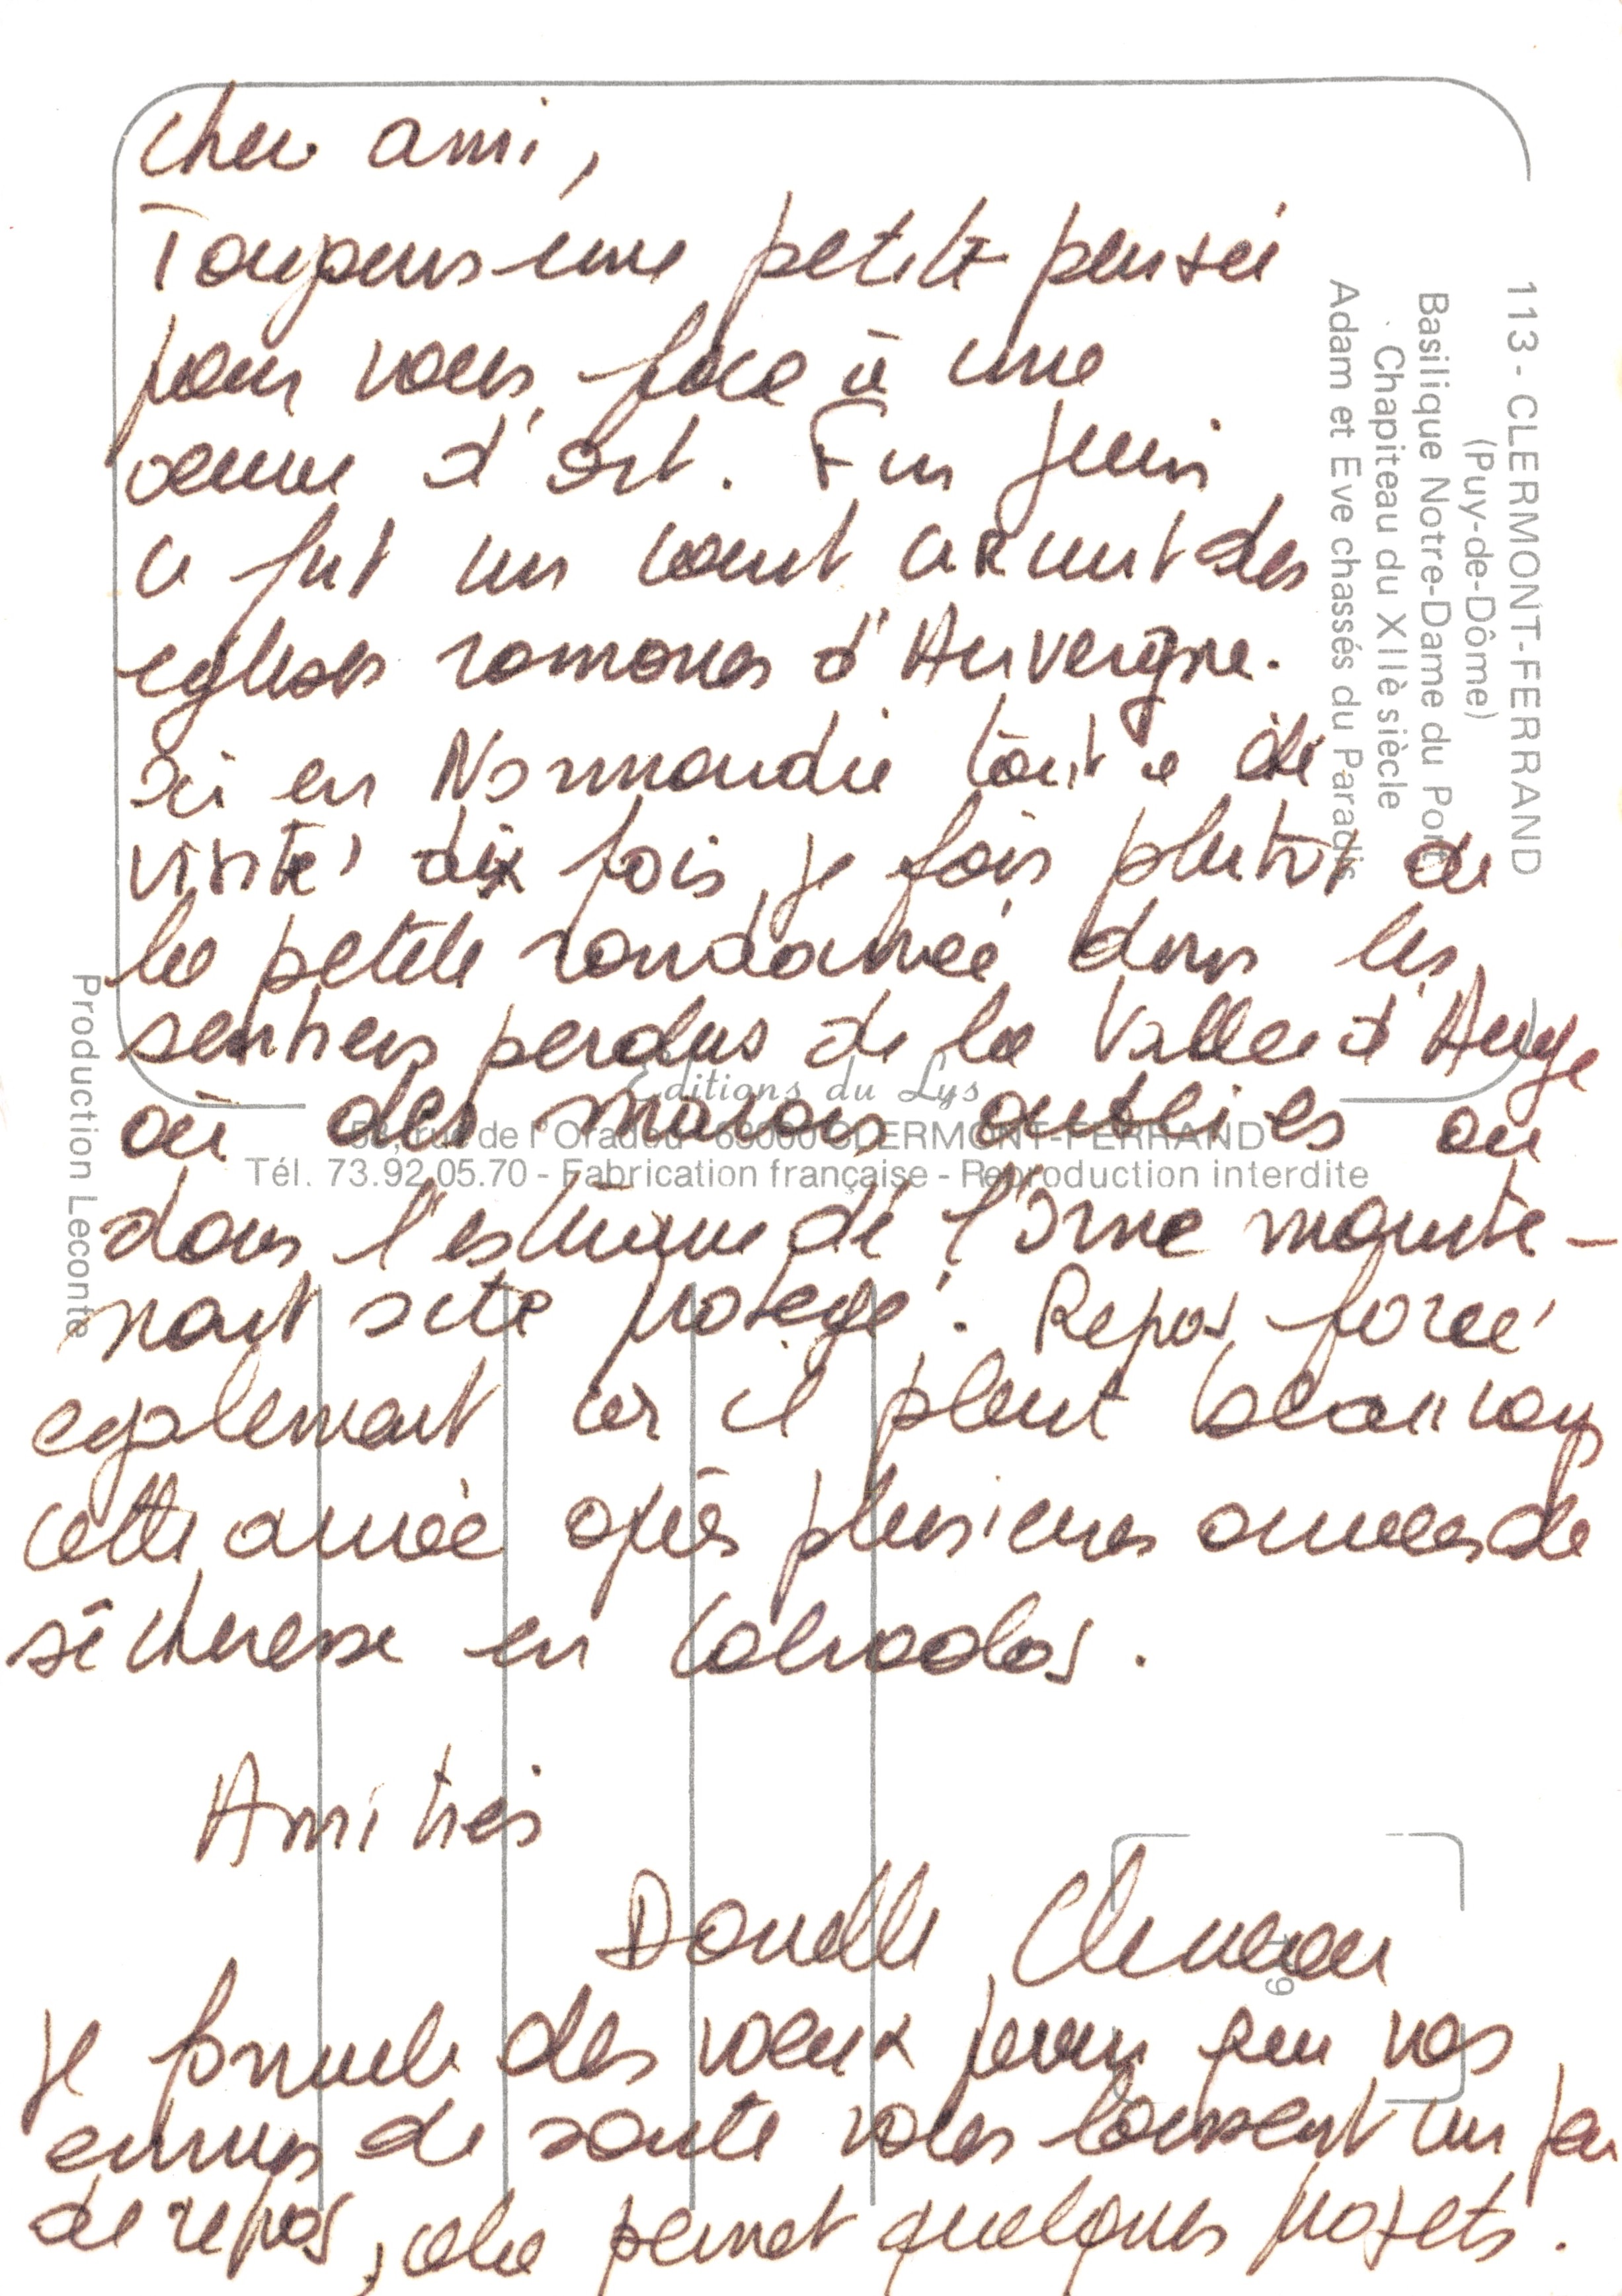 cher ami,
Toujours une petite pensée
pour vous, face à une
oeuvre d'art. Fin juin,
ce fut un court circuit des
eglises romanes d'Auvergne.
Ici en Normandie tout a été
visité dix fois, je fais plutôt de
la petite randonnée dans les
sentiers perdus de la Vallée d'Auge
où des marais oubliés ou
dans l'estuaire de l'Orne mainte-
nant site protégé. Repos forcé
egalement car il pleut beaucoup
cette année après plusieurs années de
sécheresse en Calvados.
Amitiés
Je formule des voeux pour que vos
ennuis de santé vous laissent un peu
de repos, cela permet quelques projets.
113 - CLERMONT-FERRAND
(Puy-de-Dôme)
Basilique Notre-Dame du Port
Chapiteau du XIIè siècle
Adam et Eve chassés du Paradis
Production Leconte
Editions du Lys
58, rue de l'Oradou - 63000 CLERMONT-FERRAND
Tél. 73.92.05.70 - Fabrication française - Reproduction interdite